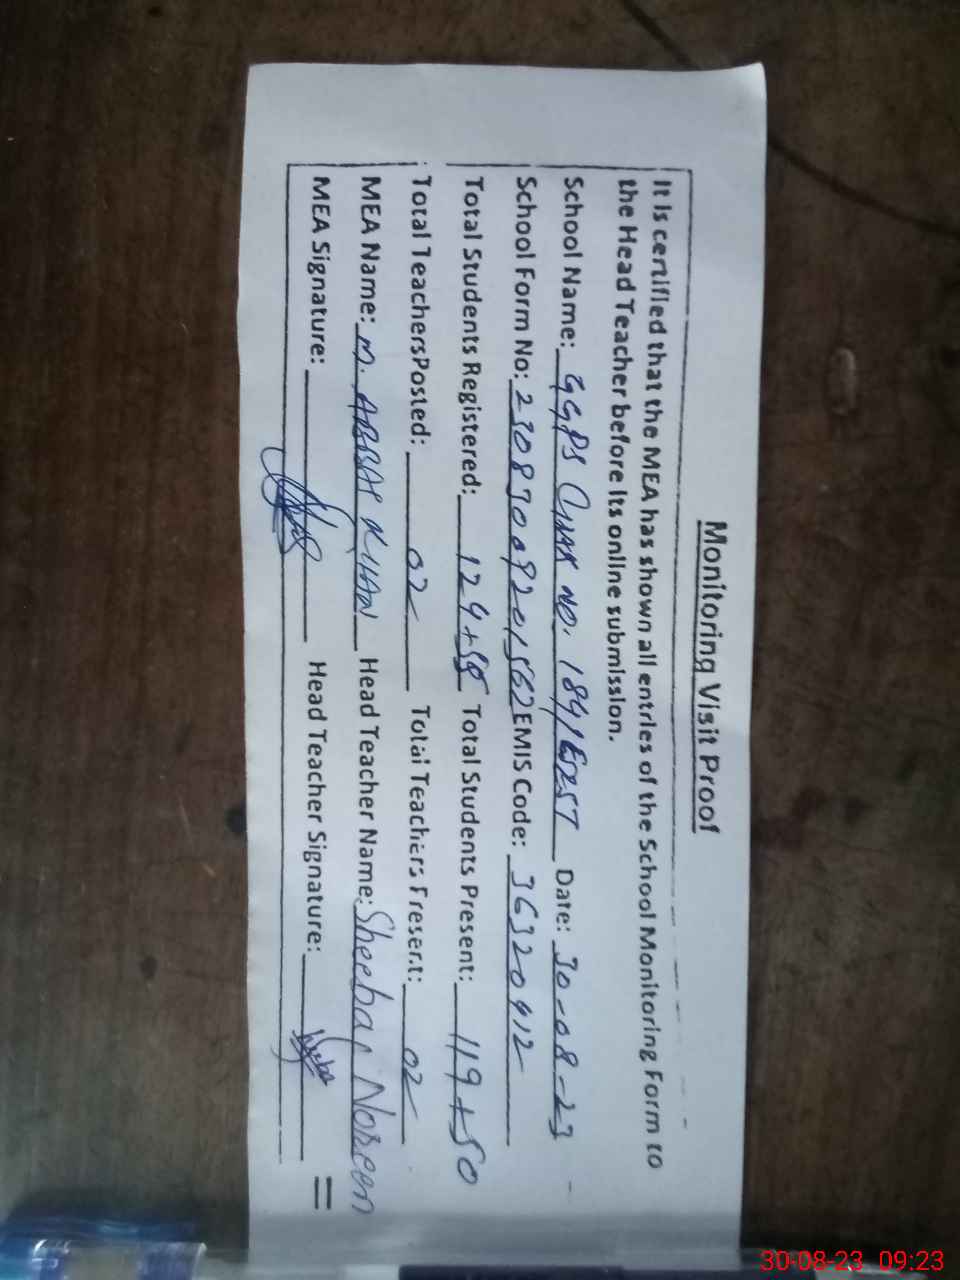 Monitoring Visit Proof
It is certified that the MEA has shown all entries of the School Monitoring Form to
the Head Teacher before its online submission.
School Name: GGPS Chak NO. 184/ Date: 30-08-23
School Form No: EMIS Code: 36320412
Total Students Registered: Total Students Present: 119+50
Total TeachersPosted: 02 Total Teachers Present: 02
MEA Name: M. ABRAR KHAN Head Teacher Name: Noreen
MEA Signature: Head Teacher Signature:
30-08-23 09:23